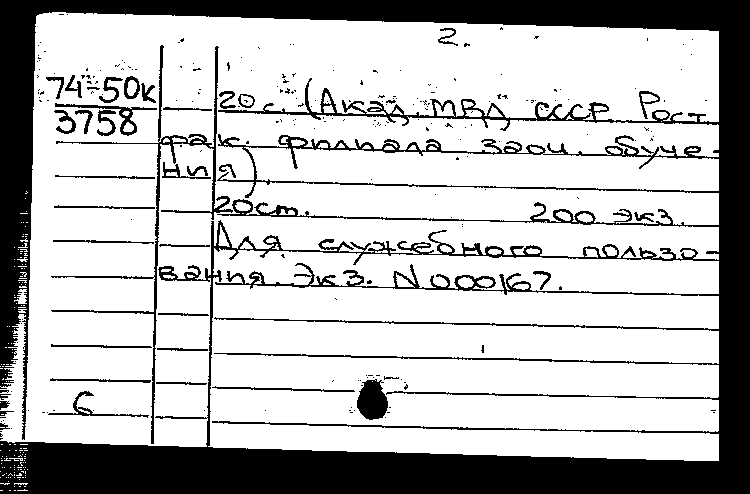 2.
74-50к
3758
20 с. (Акад. МВД СССР. Рост.
фак. филиала заоч. обуче-
ния).
20 ст. 200 экз.
Для служебного пользо-
вания. Экз. N 000167.
6